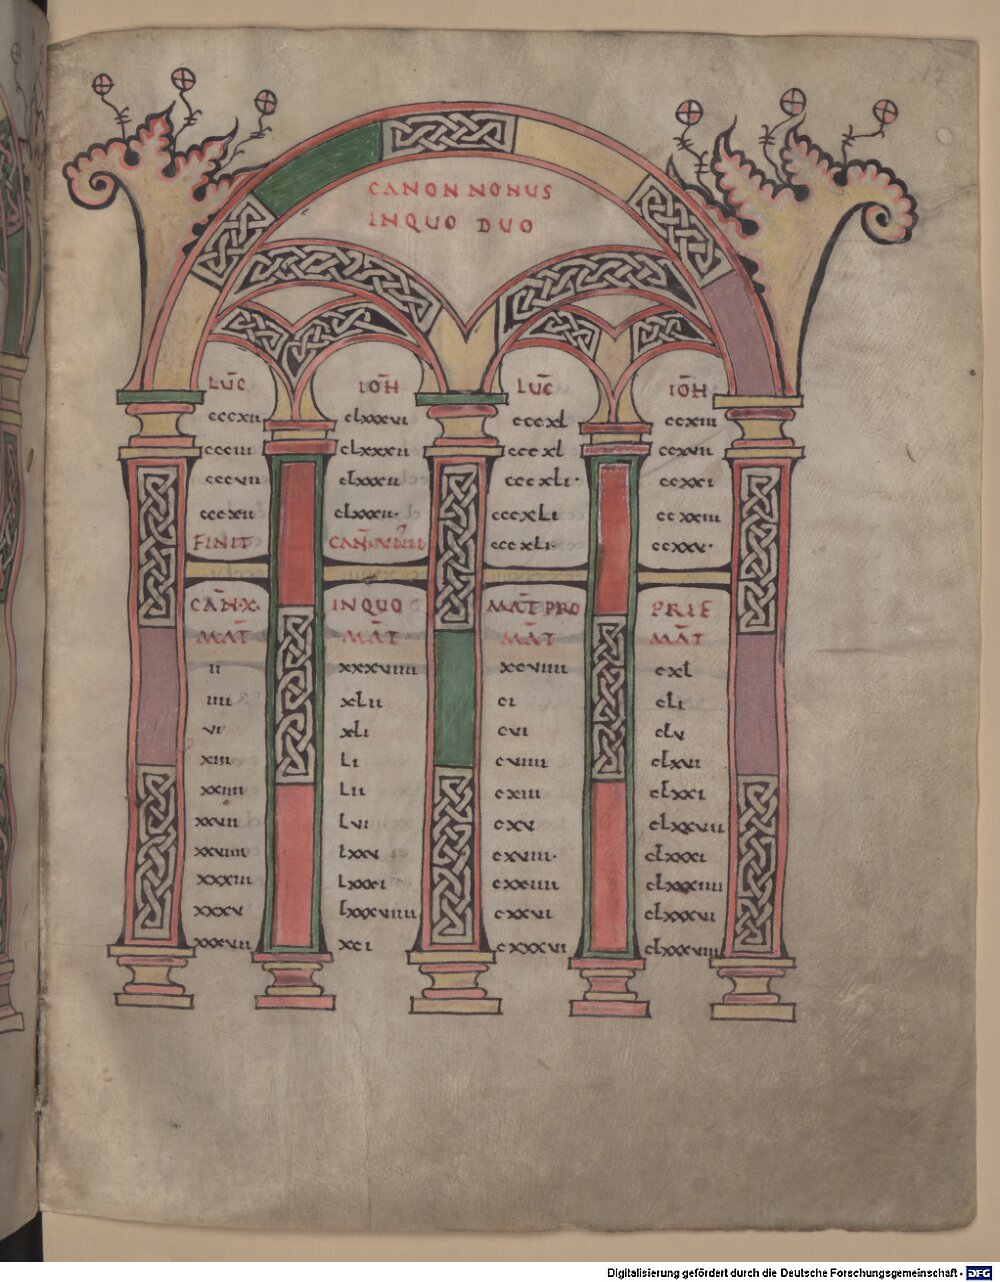 CANON NONUS
IN QUO DUO
LUC̄ IOH̄ LUC̄ IOH̄
cccxii clxxxvi cccxl ccxiii
ccciii clxxxii cccxl ccxvii
cccvii clxxxii cccxli· ccxxi
cccxii clxxxii· cccxli ccxxiii
FINIT CAN̄·VIIII cccxli· ccxxv·
CAN̄·X· IN QUO MAT̄ PRO PRIE
MAT̄ MAT̄ MAT̄ MAT̄
ii xxxviiii xcviiii cxl
iiii xlii ci cli
vi xli cvi clv
xiii li cviiii clxvi
xxiiii lii cxiii clxxi
xxvii lvi cxv clxxvii
xxviiii lxxv cxviii· clxxxi
xxxiii lxxxi cxxiiii clxxxiiii
xxxv lxxxviiii cxxvi clxxxvi
xxxvii xci cxxxvi clxxxviii
Digitalisierung gefördert durch die Deutsche Forschungsgemeinschaft - DFG